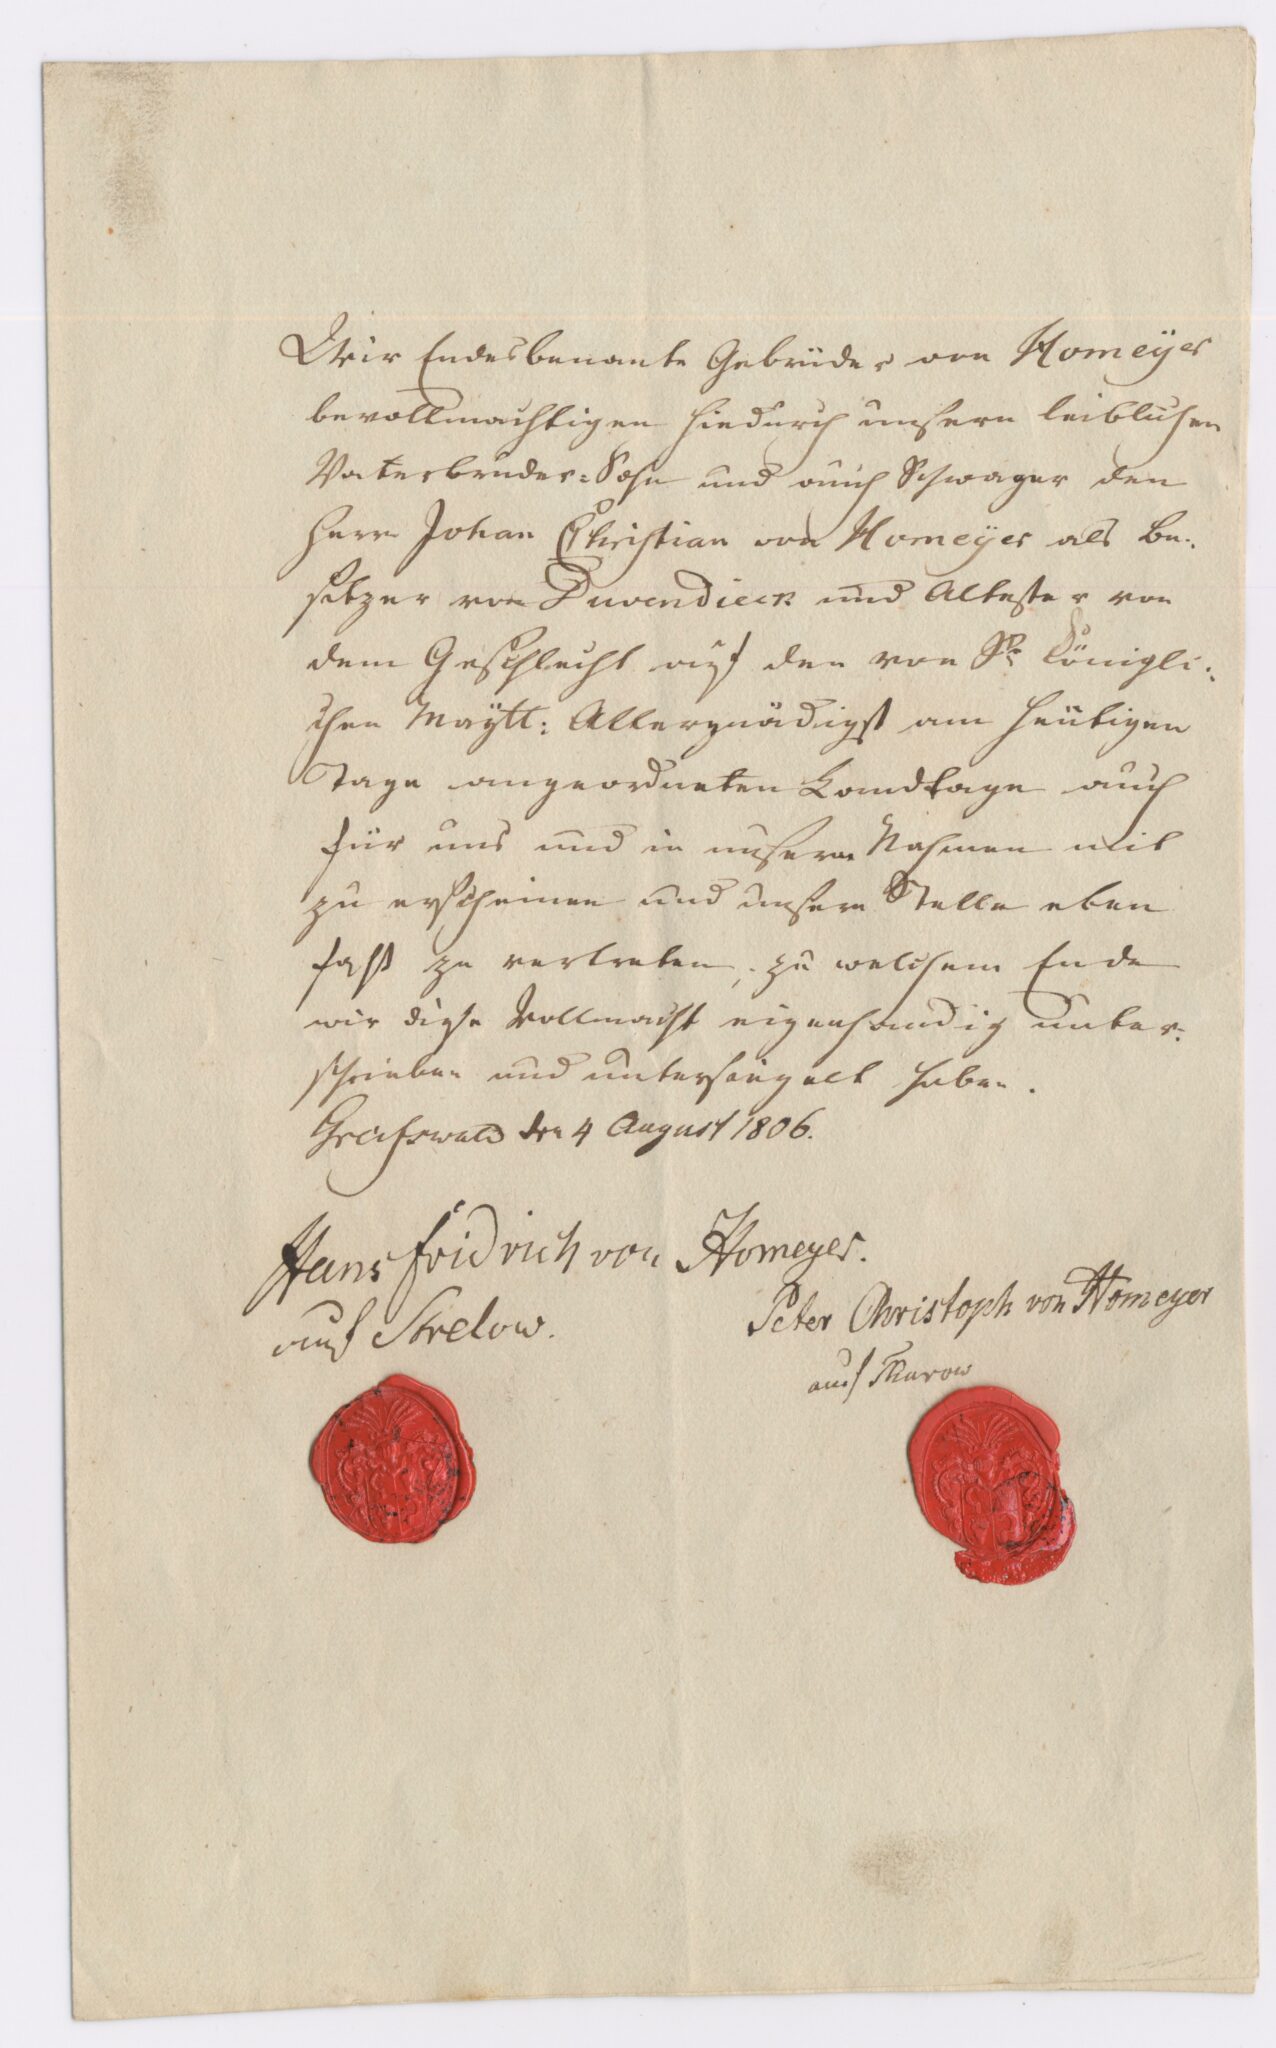 Wir Endesbenante Gebrüder von Homeÿer
bevollmachtigen hiedurch unsern leiblichen
Vatersbruder-Sohn und auch Schwager den
Herrn Johan Christian von Homeÿer als Be-
sitzer von Duvendieck und Altester von
dem Geschlecht auf den von Sr Königli-
chen Maÿtt: Allergnädigst am heütigen
Tage angeordneten Landtage auch
für uns und in unsern Nahmen mit
zu erscheinen und unsere Stelle eben
falß zu vertreten, zu welchem Ende
wir diese Vollmacht eigenhandig unter-
schrieben und untersiegelt haben.
Greifswald den 4 August 1806.
Hans Fridrich von Homeyer.
auf Strelow.
Peter Christoph von Homeyer
auf